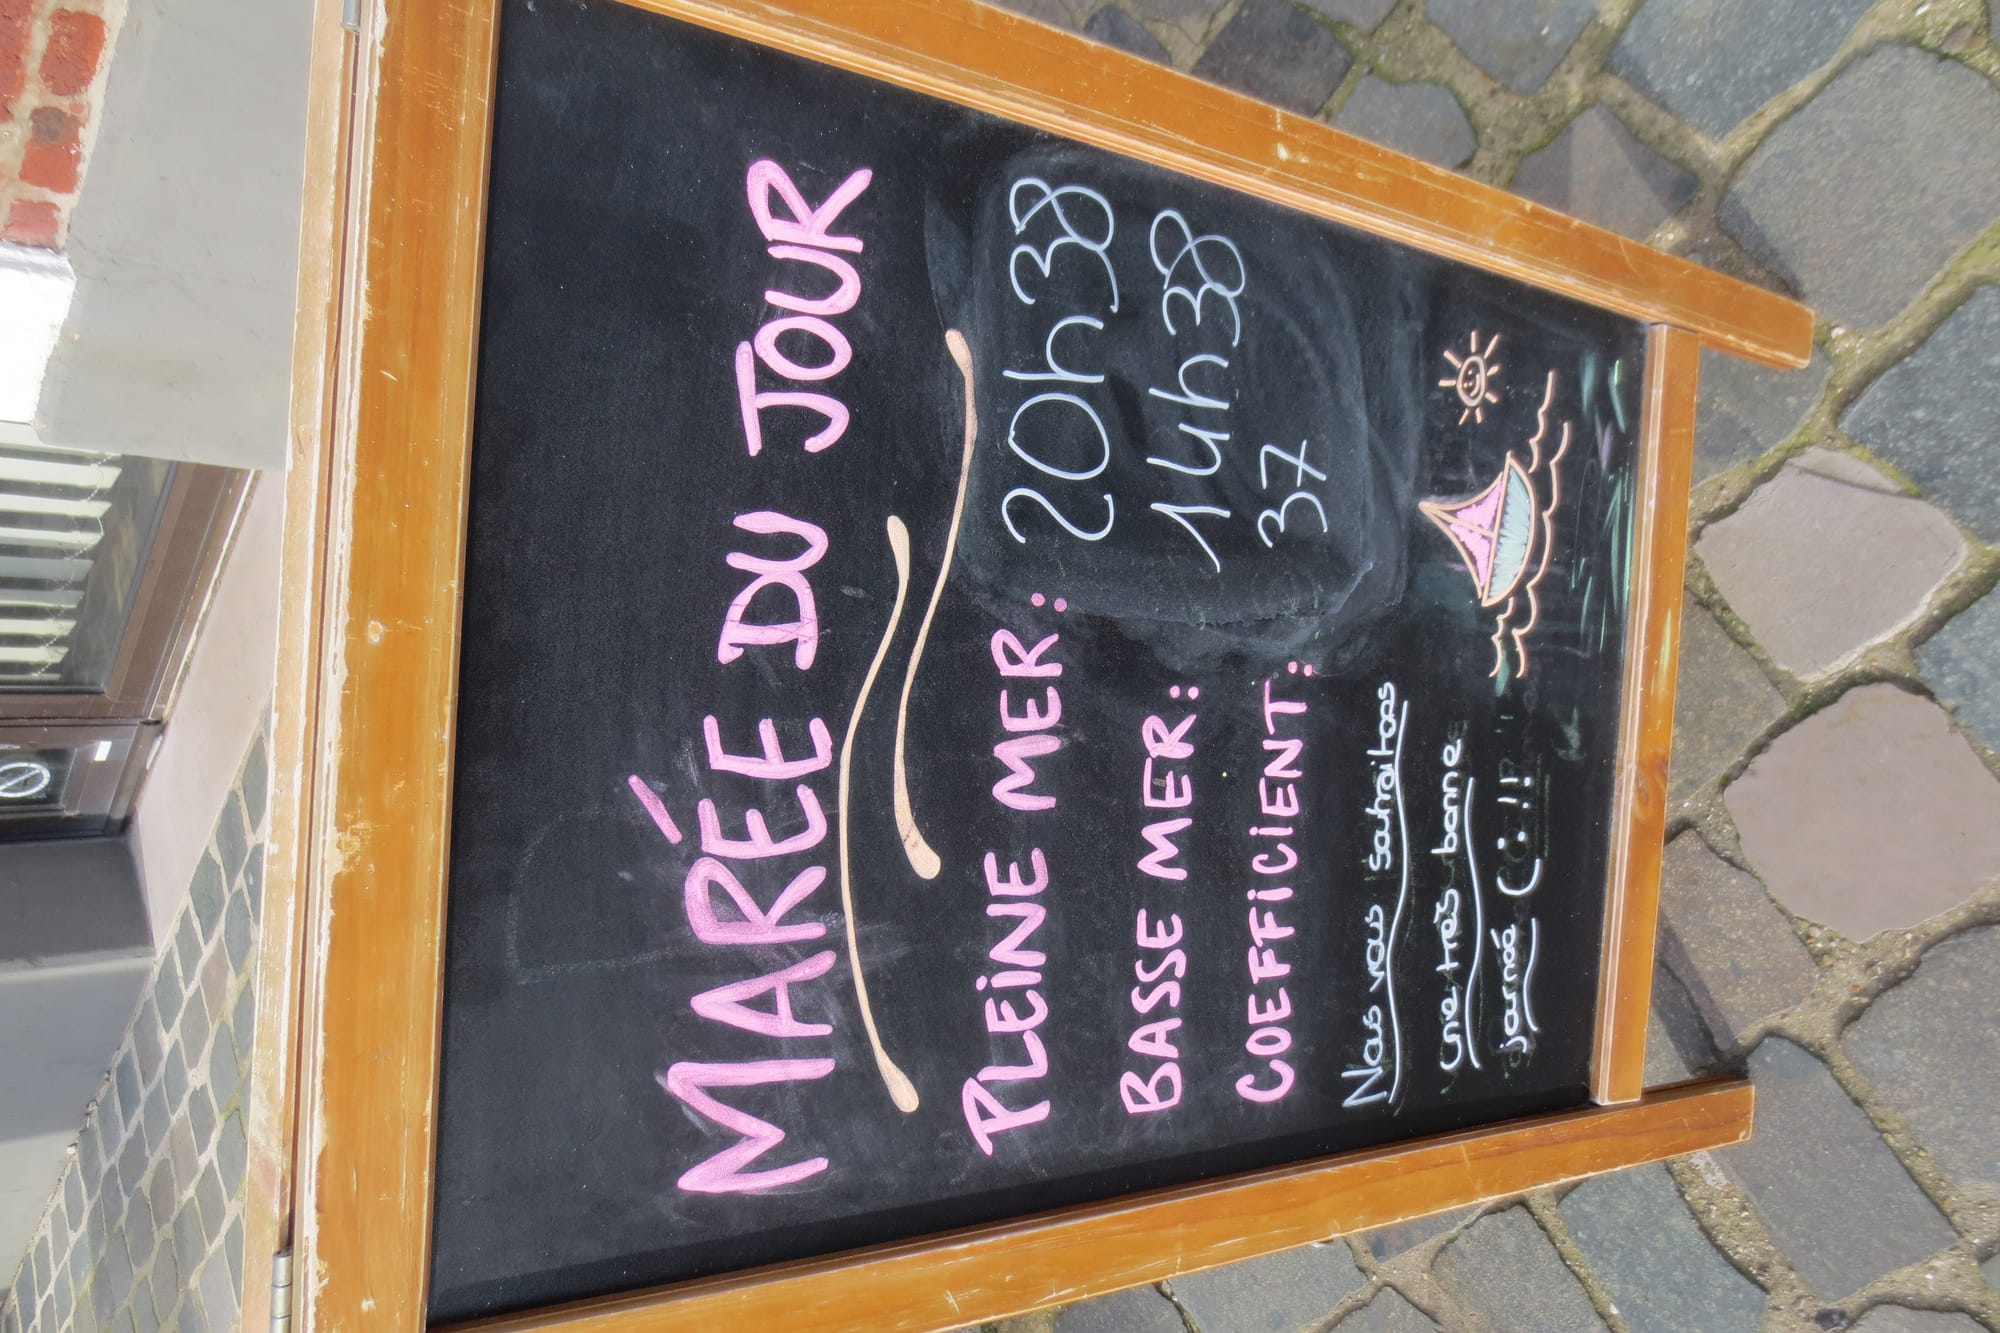 MARÉE DU JOUR
PLEINE MER: 20h38
BASSE MER: 14h38
COEFFICIENT: 37
Nous vous souhaitons
une très bonne
journée (: !!